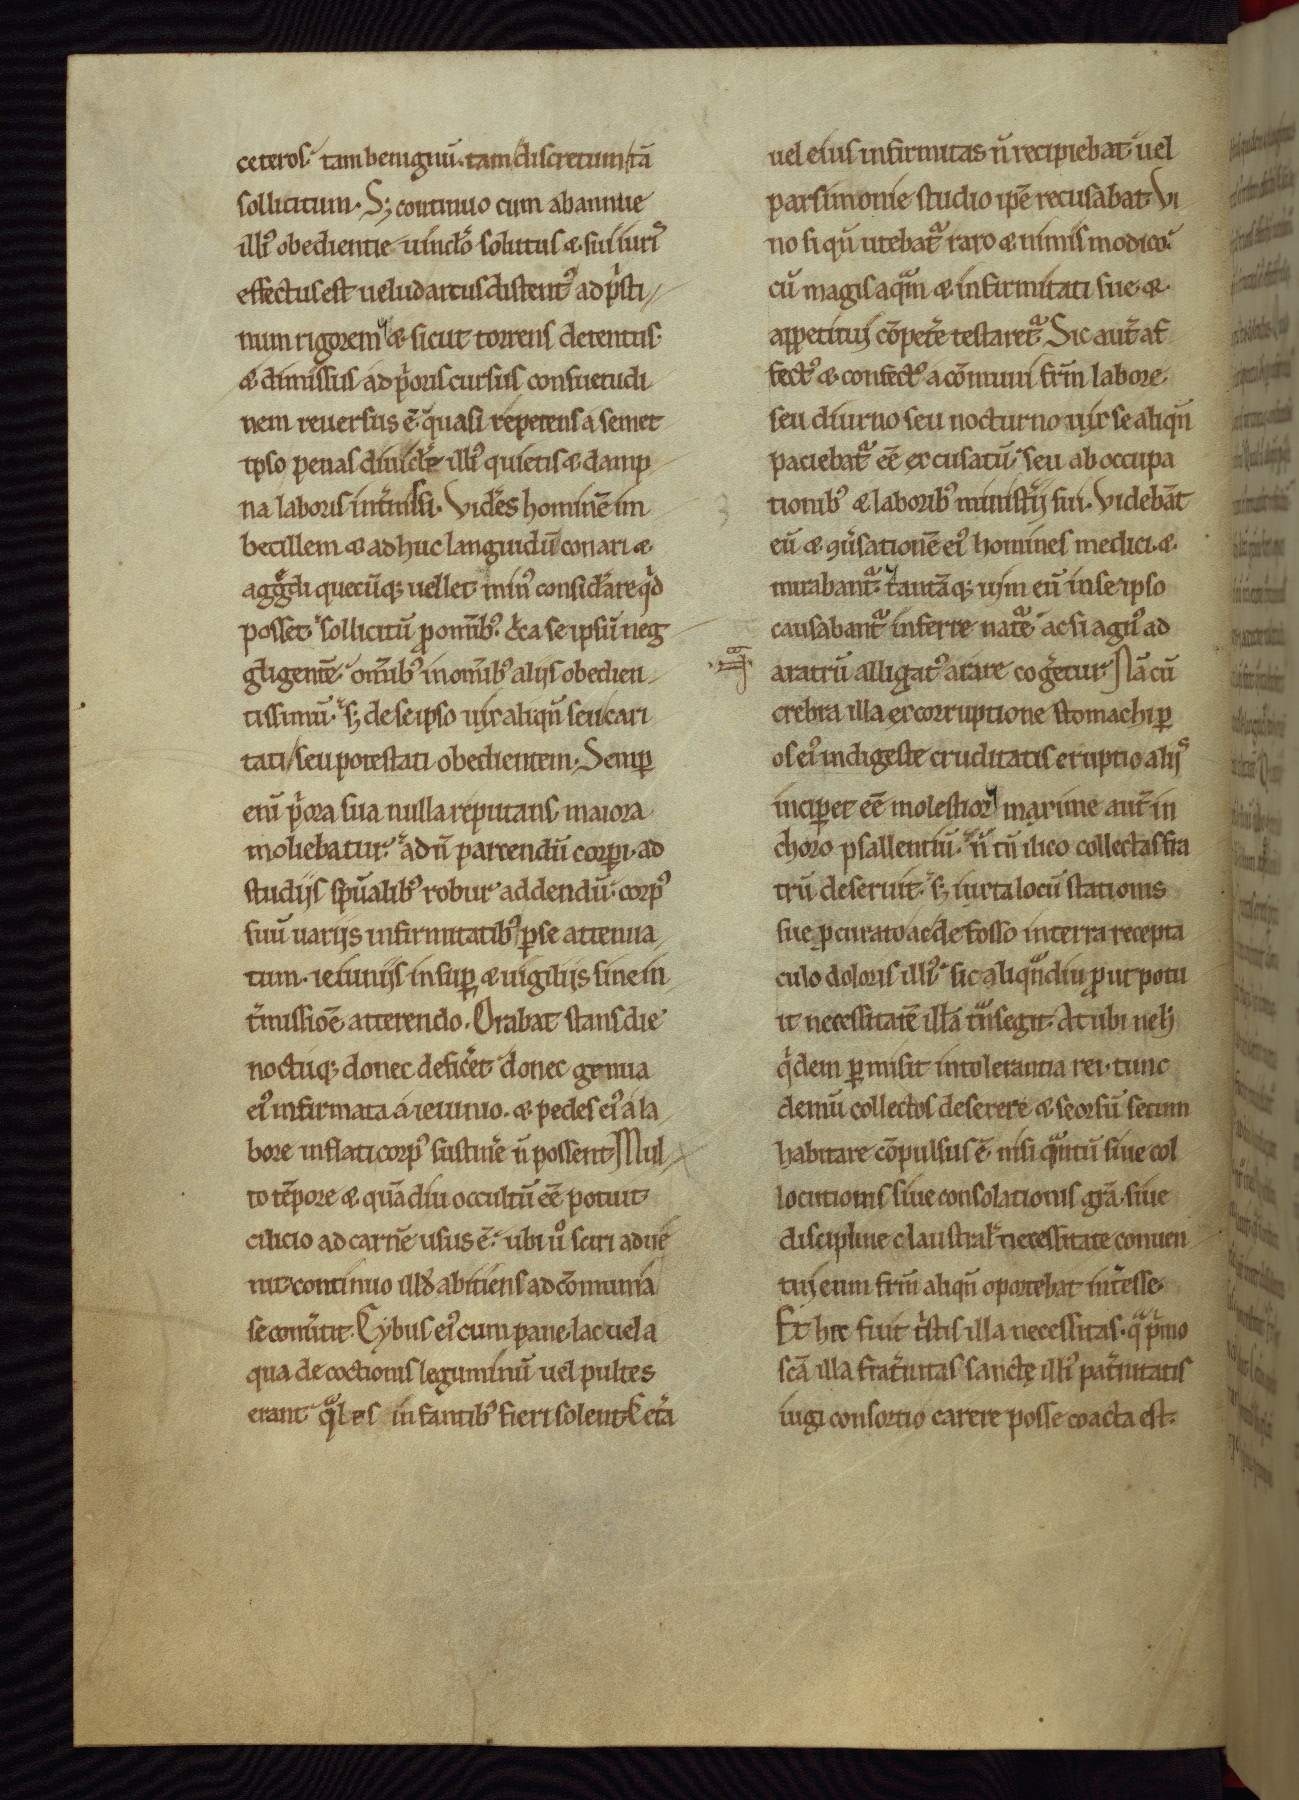 ceteros. tam benignū. tam discretum tā
sollicitum. Sꝫ continuo cum ab annue
illiꝰ obedientie uinclo solutus & sui iuris
effectus est uelud arcus distentꝰ ad pristi
num rigorem & sicut torrens detentus
& dimissus ad prioris cursus consuetudi
nem reuersus ē quasi repetens a semet
ipso penas diuicle illiꝰ quietis & damp
na laboris intermissi. Videres hominē im
becillem & adhuc languidū conari &
aggredi quecūqꝫ uellet minꝰ considerare qd
posset. sollicitū pro omnibꝰ. circa se ipsū neg
gligentē. omnibꝰ in omnibꝰ aliis obedien
tissimū. sꝫ de se ipso uix aliqn̄ seu cari
tati seu potestati obedientem. Semꝑ
enī priora sua nulla reputans maiora
moliebatur. ad n̄ parcendū corpori. ad
studiis spūalibꝰ robur addendū. corpꝰ
suū uariis infirmitatibꝰ per se attenua
tum. ieiuniis insuꝑ & uigiliis sine in
termissiōe atterendo. Orabat stans die
noctuqꝫ donec deficeret donec genua
eiꝰ infirmata a ieiunio. & pedes eiꝰ a la
bore inflati corpꝰ sustinere n̄ possent. Mul
to tēpore & quādiu occultū eē potuit
cilicio ad carnē usus ē. ubi uº sciri aduē
nit continuo illud abiciens ad cōmunia
se conuertit. Cybus eiꝰ cum pane. lac uel a
qua decoctionis leguminū uel pultes
erant quales infantibꝰ fieri solent. Cetera
uel eius infirmitas n̄ recipiebat uel
parsimonie studio ipē recusabat. Vi
no si qn̄ utebatur raro & nimis modico.
cū magis aquam & infirmitati sue &
appetitui cōpetere testaretur. Sic autem af
fectꝰ & confectꝰ a cōmuni frm̄ labore
seu diurno seu nocturno uix se aliqn̄
paciebatur eē excusatū. seu ab occupa
tionibꝰ & laboribꝰ ministerii sui. Videbāt
eū & ꝯuersationē eiꝰ homines medici &
mirabantur. tantāqꝫ uim eū in se ipso
causabantur inferre nature. ac si agnꝰ ad
aratrū alligatꝰ arare cogeretur. Nā cū
crebra illa ex corruptione stomachi ꝑ
os eiꝰ indigeste cruditatis eruptio aliis
inciperet eē molestior maxime autem in
choro psallentiū. n̄ tn̄ ilico collectas fra
trū deseruit. sꝫ iuxta locū stationis
sue procurato ac defosso in terra recepta
culo doloris illiꝰ sic aliqn̄diu prout potu
it necessitatē illā transegit. At ubi nec
qidem permisit intolerantia rei. tunc
demū collectos deserere & seorsū secum
habitare cōpulsus ē nisi quantū siue col
locutionis siue consolationis grā. siue
discipline claustralis necessitate conuen
tui eum frm̄ aliqn̄ oportebat interesse.
Et hec fuit tristis illa necessitas. qua primo
scā illa fraternitas sancte illiꝰ paternitatis
iugi consortio carere posse coacta est.